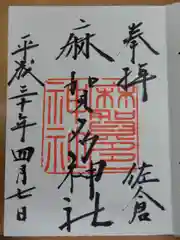 奉拝
佐倉
麻賀多神社
麻賀多
神社
平成三十年四月七日